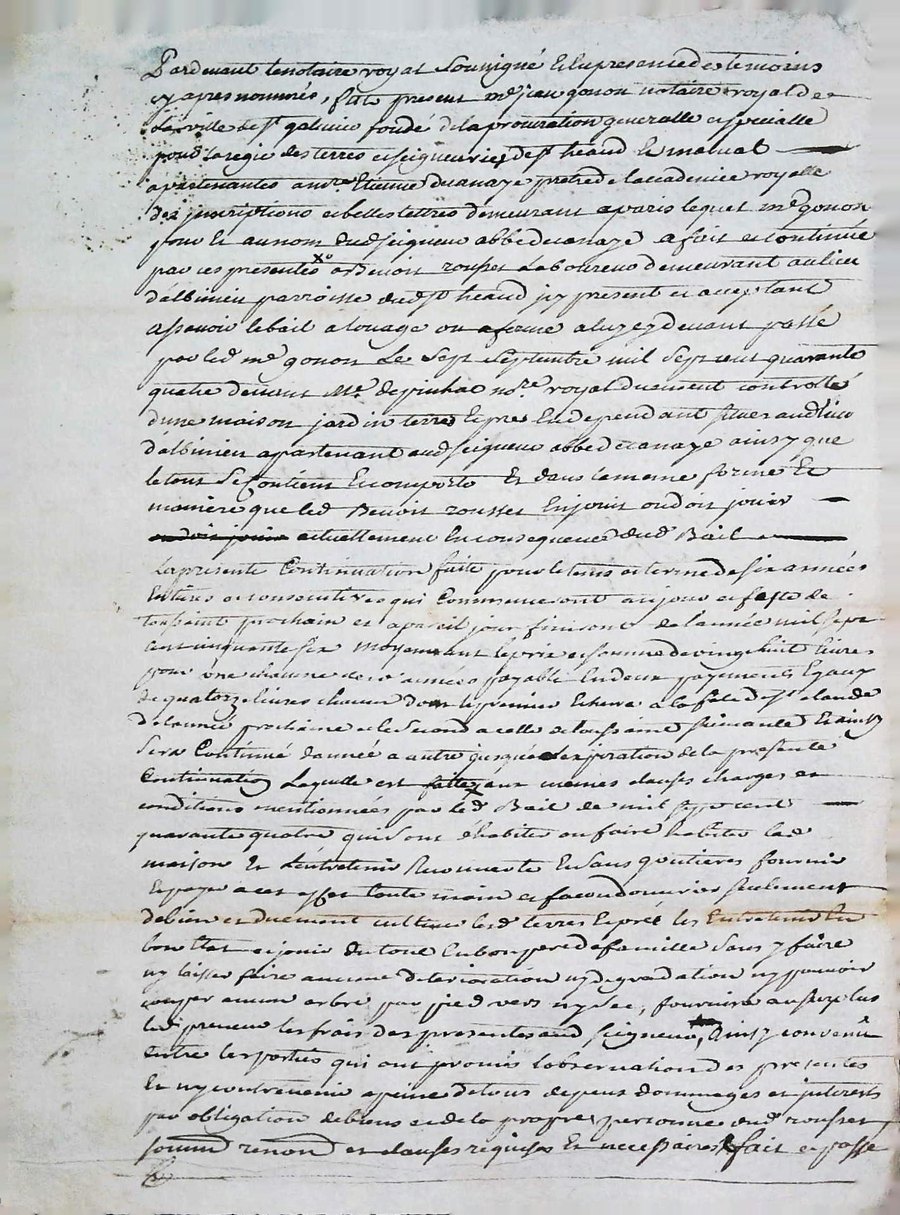 Pardevant le notaire royal soussigné et en presence des temoins
cy apres nommés, fut present me jean gonon notaire royal de
la ville de st galmier fondé de la procuration generalle et specialle
pour la regie des terres et seigneuries de st heand et malval
apartenantes a mre Etienne decanaye pretre de laccademie royalle
des inscriptions et belles lettres demeurant a paris lequel me gonon
pour et au nom dud seigneur abbé decanaye a fait et continué
par ces presentes a Benoit rousset Laboureur demeurant au lieu
d'albinieu parroisse dud st heand icy present et acceptant
assavoir le bail a louage ou a ferme a luy cy devant passé
par led me gonon Le sept septembre mil sept cent quarante
quatre devant Me. nore royal duement controllé
dune maison jardin terres et pré En dependant situés aud lieu
d'albinieu apartenant aud seigneur abbé decanaye ainsy que
le tout se contient Et comporte Et dans la meme forme Et
maniere que led Benoit rousset En jouit ou doit jouir
ou doit jouir actuellement En consequence dud Bail
La presente Continuation faite pour le tems et terme de six années
Entieres et consecutives qui Commenceront au jour et feste de
toussaint prochain et a pareil jour finiront de l'année mil sept
cent cinquante six moyennant le prix et somme de vingt huit livres
pour une chacune desd années payable En deux payements Egaux
de quatorze livres chacun dont le premier Echerra a la fete de st claude
de lannée prochaine et le second a celle de toussaint suivante Et ainsy
sera Continué dannée a autre jusques a lexpiration de la presente
Continuation Laquelle est faitte aux memes clauses charges et
conditions mentionnées par led Bail de mil sept cent
quarante quatre qui sont dhabiter ou faire habiter lad
maison Et Lentretenir Recouverte En sans goutieres fournir
Et payer a cet effet toute main et facon douvrier seulement
de bien et duement cultiver lesd terres Et prés les Entretenir En
bon Etat et jouir du tout En bon pere de famille sans y faire
ny laisser faire aucune deterioration ny degradation ny pouvoir
couper aucun arbre par pied vert ny sec, fournira au surplus
led preneur les frais des presentes aud seigneur, Ainsy convenu
entre les parties qui ont promis lobservation des presentes
Et ny contrevenir a peine de tous depens dommages et interests
par obligation de biens et de la propre personne dud rousset
soumn renonn et clauses requises Et necessaires fait et passé